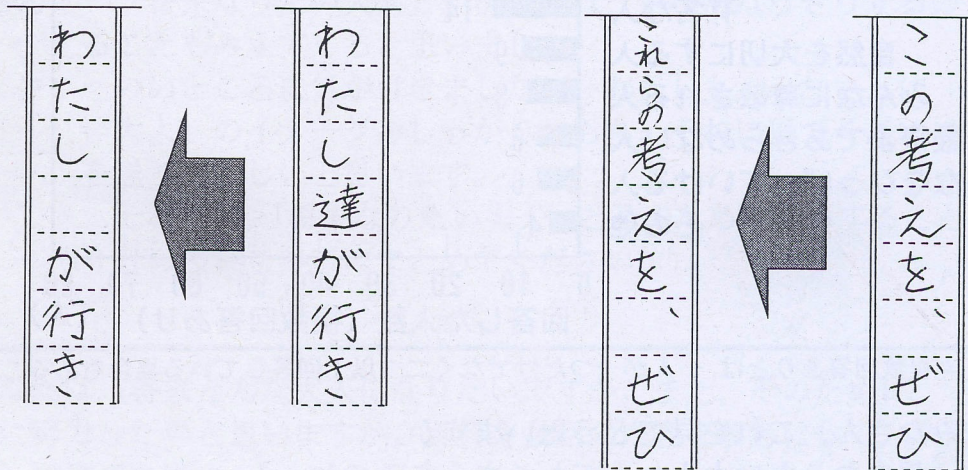 この考えを、ぜひ
これらの考えを、ぜひ
わたし達が行き
わたし が行き